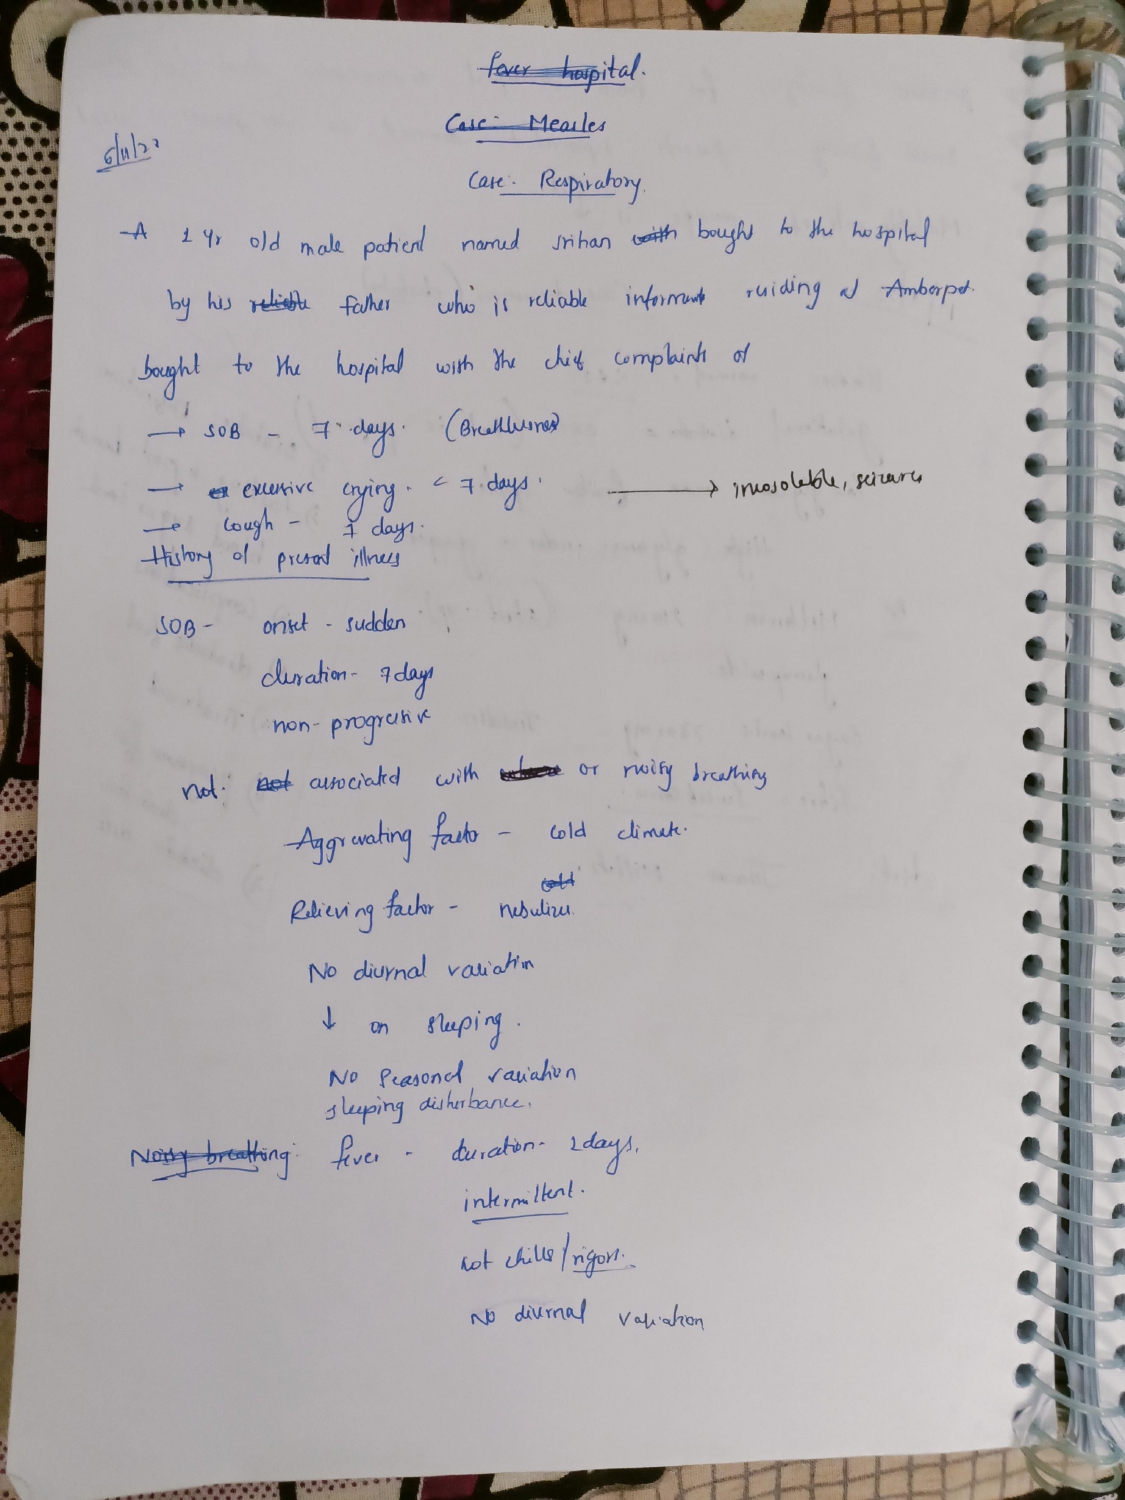 fever hospital.
Case:- Measles
6/11/22
Case:- Respiratory.
A 1 yr old male patient named srihan with bought to the hospital
by his reliable father who is reliable informant residing at Amberpet.
bought to the hospital with the chief complaints of
→ SOB - 7 days. (Breathlessness)
→ ex excessive crying. < 7 days. → inconsolable, seizures
→ Cough - 7 days.
History of present illness
SOB - onset - sudden
duration - 7 days
non-progressive
not. not associated with or noisy breathing
Aggrevating factor - cold climate.
cold
Relieving factor - nebulizer.
No diurnal variation
↓ on sleeping.
No seasonal variation
sleeping disturbance.
Noisy breathing: fever - duration - 2 days.
intermittent.
not chills/rigors.
No diurnal variation